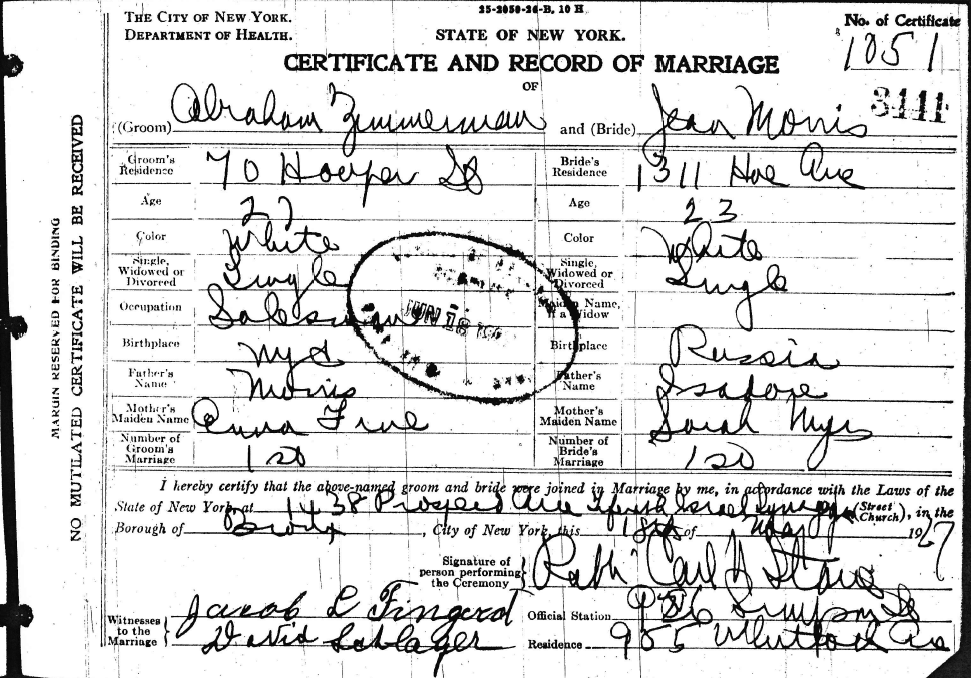 25-2050-26-B, 10 H
THE CITY OF NEW YORK.
DEPARTMENT OF HEALTH.
STATE OF NEW YORK.
No. of Certificate
1051
CERTIFICATE AND RECORD OF MARRIAGE
OF
3441
(Groom) Abraham Zimmerman and (Bride) Jean Morris
Groom's Residence 70 Hooper St Bride's Residence 1311 Hoe Ave
Age 27 Age 23
Color White Color White
Single, Widowed or Divorced Single Single, Widowed or Divorced Single
Occupation Salesman Maiden Name, if a Widow
JUN 18
Birthplace NYC Birthplace Russia
Father's Name Morris Father's Name Isadore
Mother's Maiden Name Anna Fine Mother's Maiden Name Sarah
Number of Groom's Marriage 1st Number of Bride's Marriage 1st
I hereby certify that the above-named groom and bride were joined in Marriage by me, in accordance with the Laws of the
State of New York, at 1438 Prospect Ave Israel (Street Church), in the
Borough of Bronx, City of New York, this 18th of May 1927
Signature of person performing the Ceremony Rabbi Carl
Witnesses to the Marriage Jacob L Fingerd
David Schlager
Official Station Simpson St
Residence 955
MARGIN RESERVED FOR BINDING
NO MUTILATED CERTIFICATE WILL BE RECEIVED